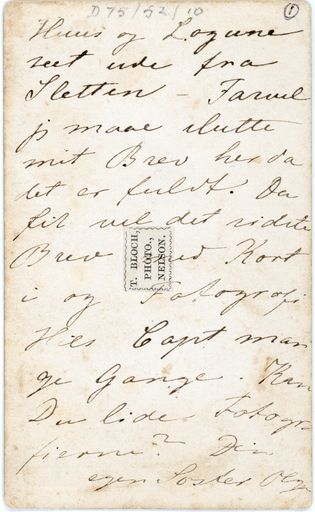 D75/52/10
1
Huus og Logune
seet ude fra
Sletten - Farvel
jeg maae slutte
mit Brev her da
det er fuldt. Du
fik vel det sidste
Brev med Kort
i og Fotografi
T. BLOCH,
PHOTO.,
NELSON.
Hils Capt man
ge Gange. Kan
Du lide Fotogra
fierne? Din
egen Søster Olga